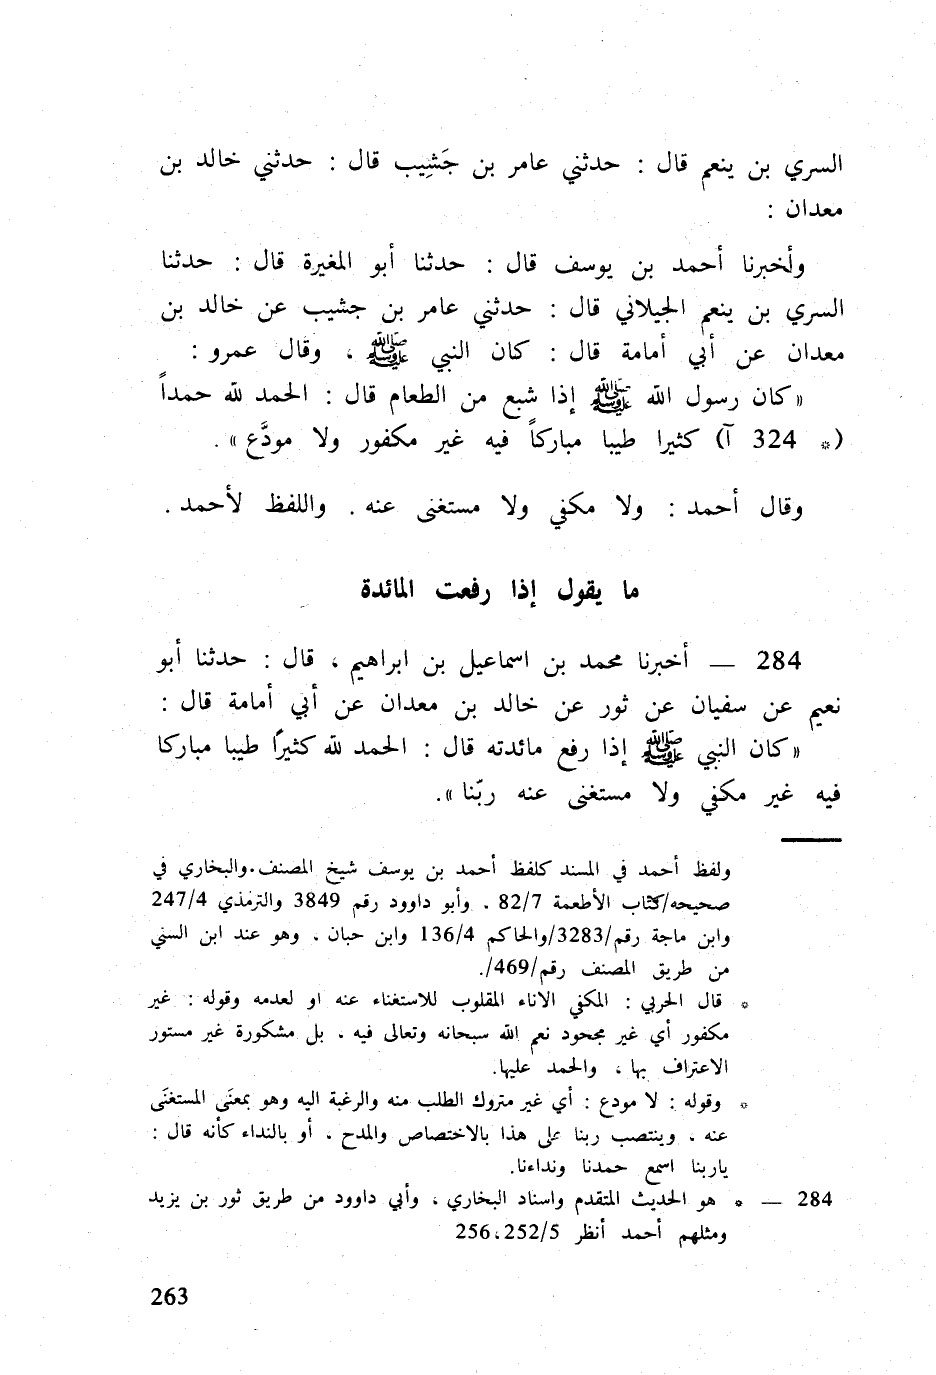 السري بن ينعم قال : حدثني عامر بن جَشِيب قال : حدثني خالد بن
معدان :
وأخبرنا أحمد بن يوسف قال : حدثنا أبو المغيرة قال : حدثنا
السري بن ينعم الجيلاني قال : حدثني عامر بن جشيب عن خالد بن
معدان عن أبي أمامة قال : كان النبي ﷺ ، وقال عمرو :
« كان رسول الله ﷺ إذا شبع من الطعام قال : الحمد لله حمداً
(* 324 آ) كثيرا طيبا مباركاً فيه غير مكفور ولا مودَّع » .
وقال أحمد : ولا مكفي ولا مستغنى عنه . واللفظ لأحمد .
ما يقول إذا رفعت المائدة
284 — أخبرنا محمد بن اسماعيل بن ابراهيم ، قال : حدثنا أبو
نعيم عن سفيان عن ثور عن خالد بن معدان عن أبي أمامة قال :
« كان النبي ﷺ إذا رفع مائدته قال : الحمد لله كثيراً طيبا مباركا
فيه غير مكفي ولا مستغنى عنه ربّنا ».
ولفظ أحمد في المسند كلفظ أحمد بن يوسف شيخ المصنف.والبخاري في
صحيحه/كتاب الأطعمة 82/7 . وأبو داوود رقم 3849 والترمذي 247/4
وابن ماجة رقم/3283/والحاكم 136/4 وابن حبان . وهو عند ابن السني
من طريق المصنف رقم/469/.
* قال الحربي : المكفي الاناء المقلوب للاستغناء عنه او لعدمه وقوله : غير
مكفور أي غير مجحود نعم الله سبحانه وتعالى فيه . بل مشكورة غير مستور
الاعتراف بها ، والحمد عليها.
* وقوله : لا مودع : أي غير متروك الطلب منه والرغبة اليه وهو بمعنَى المستغنَى
عنه . وينتصب ربنا على هذا بالاختصاص والمدح . أو بالنداء كأنه قال :
ياربنا اسمع حمدنا ونداءنا.
284 — * هو الحديث المتقدم واسناد البخاري ، وأبي داوود من طريق ثور بن يزيد
ومثلهم أحمد أنظر 252/5، 256
263